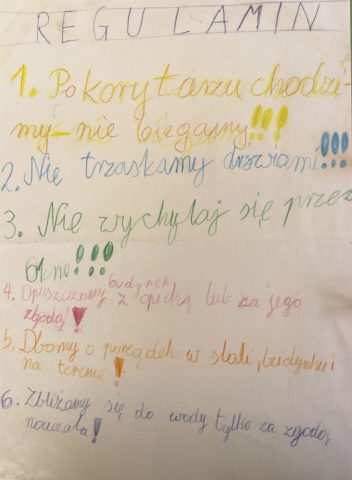 REGULAMIN
1. Po korytarzu chodzi-
my – nie biegamy!!!
2. Nie trzaskamy drzwiami!!!
3. Nie wychylaj się przez
okno!!!
4. Opuszczamy budynek z opieką lub za jego
zgodą!
5. Dbamy o porządek w sali, budynku i
na terenie!
6. Zbliżamy się do wody tylko za zgodą
nauczela!